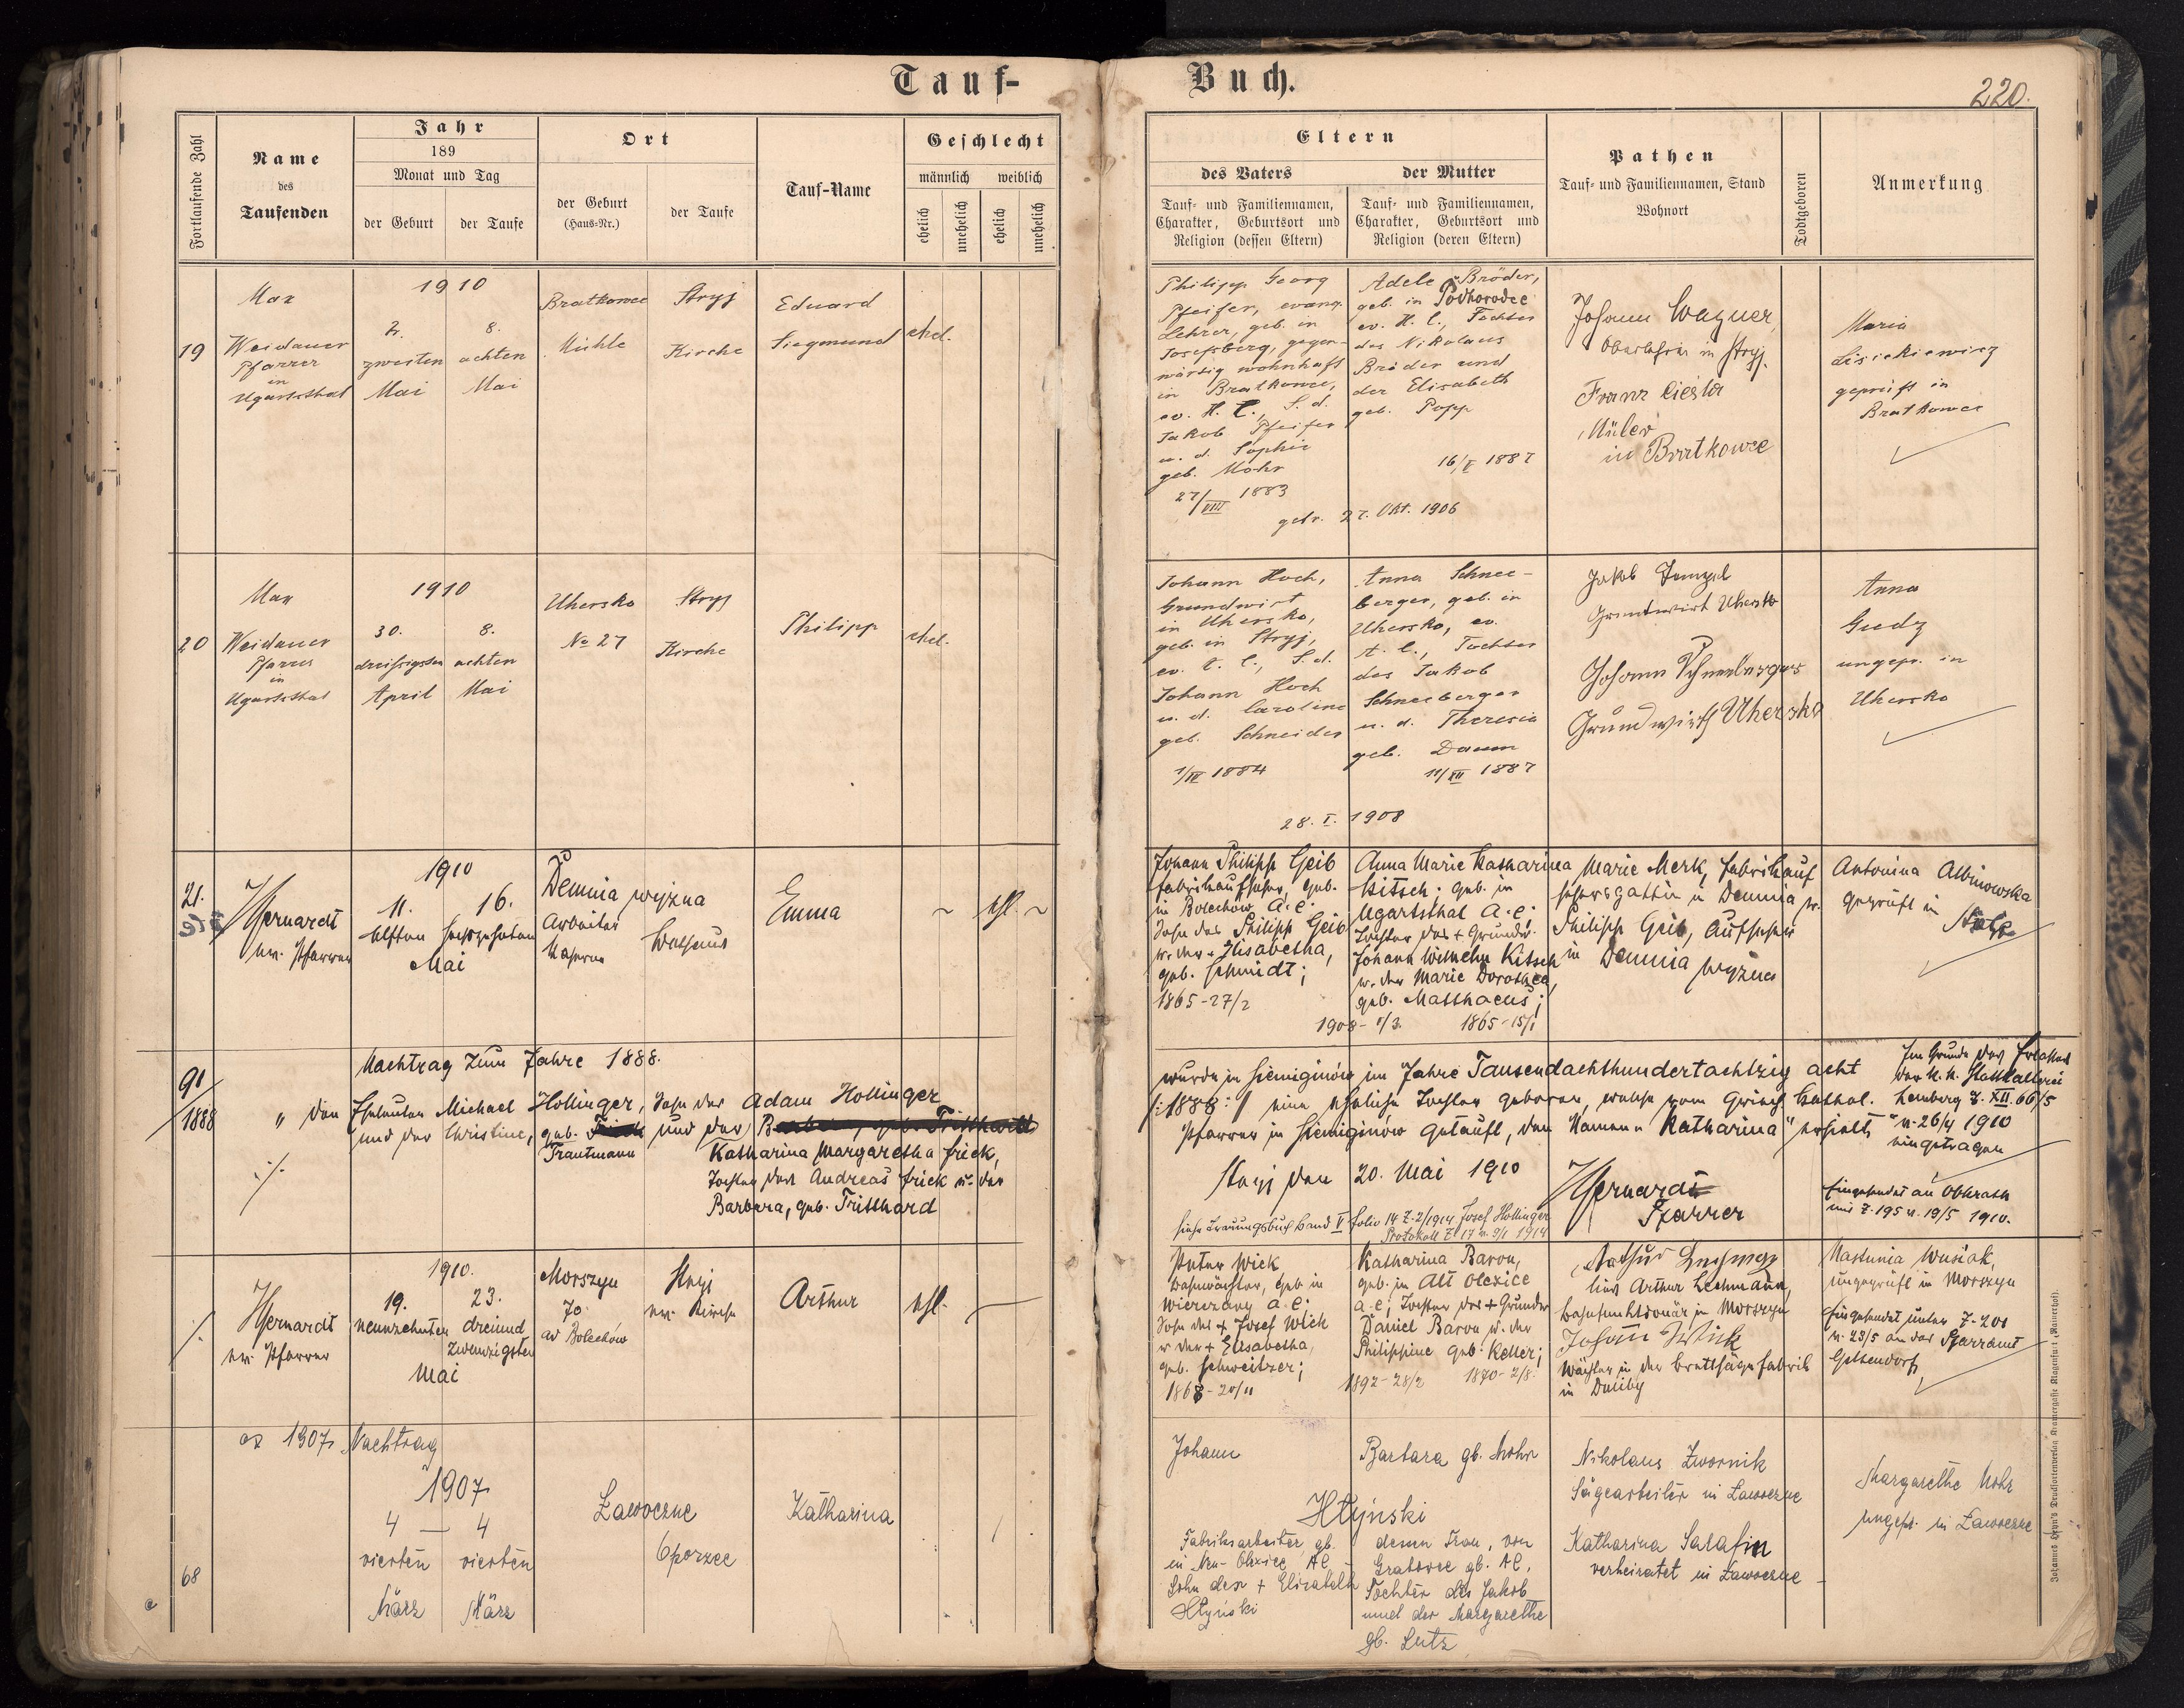 Tauf-
Buch.
220.
Fortlaufende Zahl
Name
des
Taufenden
Jahr
189
Monat und Tag
der Geburt
der Taufe
Ort
der Geburt
(Haus-Nr.)
der Taufe
Tauf-Name
Geschlecht
männlich
weiblich
ehelich
unehelich
ehelich
unehelich
Eltern
des Vaters
Tauf- und Familiennamen,
Charakter, Geburtsort und
Religion (dessen Eltern)
der Mutter
Tauf- und Familiennamen,
Charakter, Geburtsort und
Religion (deren Eltern)
Pathen
Tauf- und Familiennamen, Stand
Wohnort
Todtgeboren
Anmerkung
19
Max
Weidauer
Pfarrer
in
Ugartsthal
1910
2.
zweiten
Mai
8.
achten
Mai
Bratkowce
Mühle
Stryj
Kirche
Eduard
Siegmund
ehel.
Philipp Georg
Pfeifer, evang.
Lehrer, geb. in
Josefsberg, gegen-
wärtig wohnhaft
in Bratkowce,
ev. H. C., S. d.
Jakob Pfeifer
u. d. Sophie
geb. Mohr
27/VIII 1883
Adele Bröder,
geb. in Podhorodce
ev. H. C., Tochter
des Nikolaus
Bröder und
der Elisabeth
geb. Popp
16/V 1887
getr. 27. Okt. 1906
Johann Wagner,
Oberlehrer in Stryj.
Franz Cieśla
Müler
in Bratkowce
Maria
Lisiekiewicz
geprüft in
Bratkowce
20
Max
Weidauer
Pfarrer
in
Ugartsthal
1910
30.
dreissigsten
April
8.
achten
Mai
Uhersko
No 27
Stryj
Kirche
Philipp
ehel.
Johann Hoch,
Grundwirt
in Uhersko,
geb. in Stryj,
ev. A. C., S. d.
Johann Hoch
u. d. Caroline
geb. Schneider
1/IV 1884
Anna Schnee-
berger, geb. in
Uhersko, ev.
A. C., Tochter
des Jakob
Schneeberger
u. d. Theresia
geb. Daum
11/XII 1887
28. I. 1908
Jakob
Grundwirt Uhersko
Johann Schneeberger
Grundwirth Uhersko
Anna
Gudz
ungepr. in
Uhersko
21.
Hernardt
ev. Pfarrer
1910
11.
elften
16.
sechzehnten
Mai
Demnia wyzna
Arbeiter
Kaserne
Bethaus
Emma
ehl.
Johann Philipp Geib
Fabrikaufseher, geb.
in Bolechów A.C.
Sohn des Philipp Geib
u. der + Elisabetha,
geb. Schmidt;
1865-27/2
Anna Marie Katharina
Kitsch; geb. in
Ugartsthal A.C;
Tochter des + Grundw.
Johann Wilhelm Kitsch
u. der Marie Dorothea,
geb. Matthaeus;
1865-15/1
Marie Merk, Fabrikauf
sehersgattin in Demnia w.
Philipp Geib, Aufseher
in Demnia wyzna
Antonina Albinowska
geprüft in
90
1888
Nachtrag zum Jahre 1888.
" Den Eheleuten Michael Hollinger, Sohn des Adam Hollinger
und der Christine, geb. Trautmann und der
Katharina Margaretha Frick,
Tochter des Andreas Frick u. der
Barbara, geb. Tritthard
wurde in Siemiginów im Jahre Tausendachthundertachtzig acht
/:1888:/ eine eheliche Tochter geboren, welche vom griech. kathol.
Pfarrer in Siemiginów getauft, den Namen "Katharina" erhielt.
Stryj den 20. Mai 1910
Hernardt
Pfarrer
siehe Trauungsbuch Band V Folio 14 Z. 2/1914 Josef Hollinger
Protokoll Z. 17 v. 9/1 1914
Im Grunde des Erlasses
der k. k. Statthalterei
Lemberg Z. XII. 66/5
v. 26/4 1910
eingetragen
mit Z. 195 v. 19/5 1910.
Hernardt
ev. Pfarrer
1910.
19.
neunzehnten
23.
dreiund
zwanzigsten
Mai
Morszyn
70
ad Bolechów
Stryj
ev. Kirche
Arthur
ehl.
Peter Wick
Bahnwächter, geb. in
Wierczany A.C.
Sohn des + Josef Wick
u der + Elisabetha,
geb. Schweitzer;
1868-20/11
Katharina Baron,
geb. in Alt Olexice
A.C; Tochter des + Grundw
Daniel Baron u. der
Philippine geb. Keller;
1892-28/2 1870-2/8.
Arthur Lechmann,
in Morszyn
Johann Wick
Wächter in der Brettsägefabrik
in Duliby
Nastunia Wusiak,
ungeprüft in Morszyn
Eingesendet unter Z. 200
v. 23/5 an das Pfarramt
Gelsendorf
68
ex 1907. Nachtrag
1907
4 — 4
vierten vierten
März März
Ławoczne
Oporzec
Katharina
Johann
Barbara gb. Mohr
Hłyński
Fabriksarbeiter, gb.
in Neu-Olexice AC
Sohn der + Elisabeth
Hłyński
dessen Frau, von
gb. AC.
Tochter des Jakob
und der Margarethe
gb. Lutz
Nikolaus Zwornik
Sägearbeiter in Ławoczne
Katharina Salafin
verheiratet in Ławoczne
Margarethe Mohr
ungepr. in Ławoczne
Johannes Heyn's Drucksortenverlag Kramergasse Klagenfurt (Mayerhof).